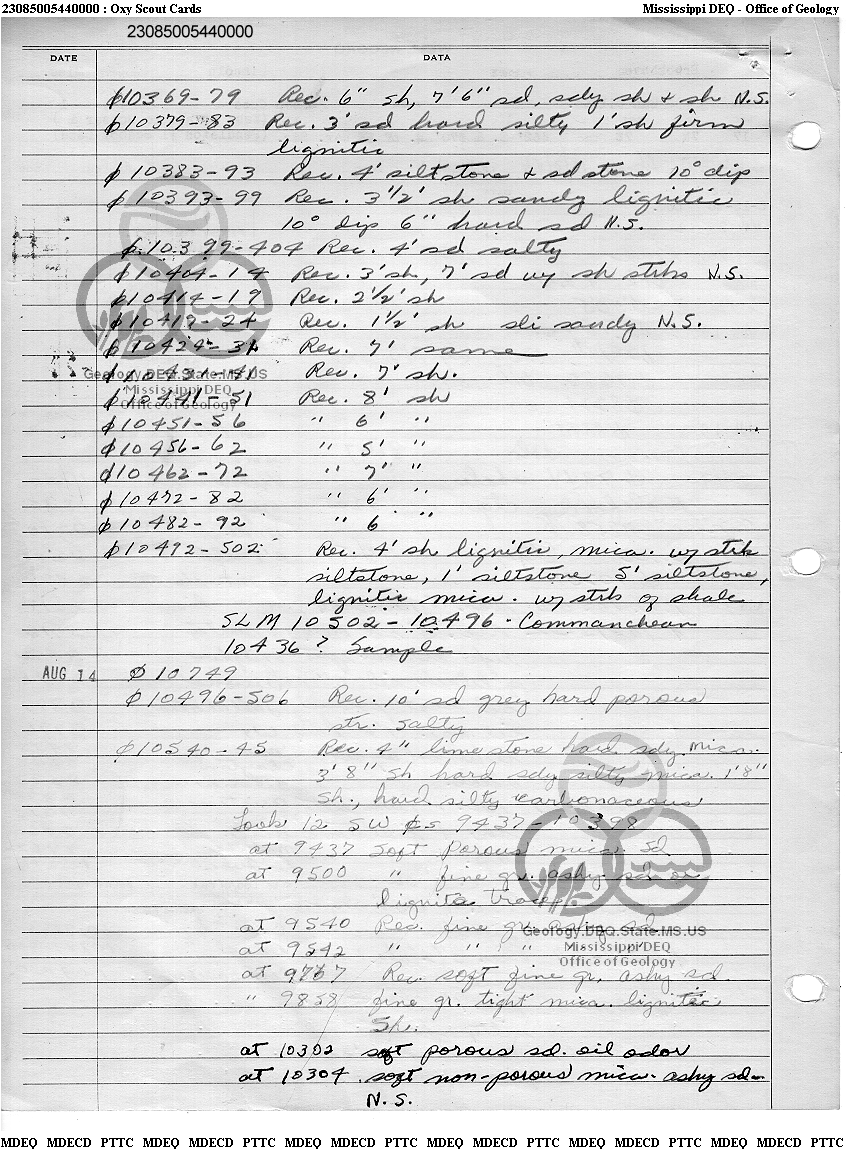 23085005440000 : Oxy Scout Cards Mississippi DEQ - Office of Geology
23085005440000
DATE DATA
¢10369-79 Rec. 6" sh, 7'6" sd, sdy sh & sh N.S.
¢10379-83 Rec. 3' sd hard silty 1' sh firm
lignitic
¢10383-93 Rec. 4' siltstone & sdstone 10° dip
¢10393-99 Rec. 3 1/2' sh sandy lignitic
10° dip 6" hard sd N.S.
¢10399-404 Rec. 4' sd salty
¢10404-14 Rec. 3' sh, 7' sd w/ sh strks N.S.
¢10414-19 Rec. 2 1/2' sh
¢10419-24 Rec. 1 1/2' sh sli sandy N.S.
¢10424-31 Rec. 7' same
¢10431-41 Rec. 7' sh.
Geology.DEQ.State.MS.US
Mississippi DEQ
Office of Geology
¢10441-51 Rec. 8' sh
¢10451-56 " 6' "
¢10456-62 " 5' "
¢10462-72 " 7' "
¢10472-82 " 6' "
¢10482-92 " 6 "
¢10492-502 Rec. 4' sh lignitic, mica. w/ strk
siltstone, 1' siltstone 5' siltstone,
lignitic mica. w/ strks of shale
SLM 10502-10496. Commanchean
10436? Sample
AUG 14 ¢10749
¢10496-506 Rec. 10' sd grey hard porous
str. salty
¢10540-45 Rec. 4" limestone hard sdy mica.
3'8" sh hard sdy silty mica. 1'8"
sh., hard silty carbonaceous
Took 12 SW ¢s 9437-10398
at 9437 soft porous mica sd
at 9500 " fine gr. ashy sd or
lignite trace.
at 9540 Rec. fine gr. ashy sd
at 9542 " " " " "
Geology.DEQ.State.MS.US
Mississippi DEQ
Office of Geology
at 9767 Rec. soft fine gr. ashy sd
" 9858 fine gr. tight mica. lignitic
sh.
at 10302 soft porous sd. oil odor
at 10304 soft non-porous mica. ashy sd.
N.S.
MDEQ MDECD PTTC MDEQ MDECD PTTC MDEQ MDECD PTTC MDEQ MDECD PTTC MDEQ MDECD PTTC MDEQ MDECD PTTC